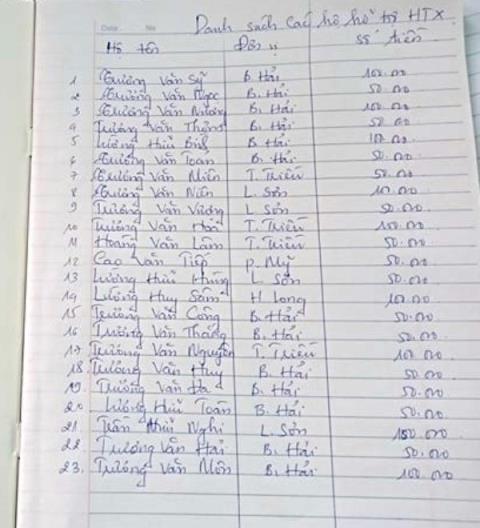 Date No
Danh sách Các hộ hỗ trợ HTX
Họ tên Đơn vị số tiền
1 Trương Văn Sỹ B. Hải 100.000
2 Trương Văn Ngọc B. Hải 50.000
3 Trương Văn Nương B. Hải 100.000
4 Trương Văn Thống B. Hải 50.000
5 Lương Hữu Bình B. Hải 100.000
6 Trương Văn Toàn B. Hải 50.000
7 Trương Văn Niên T. Triều 50.000
8 Trương Văn Niên L. Sơn 100.000
9 Trương Văn Vương L. Sơn 50.000
10 Trương Văn Hoà T. Triều 100.000
11 Hoàng Văn Lâm T. Triều 50.000
12 Cao Văn Tiếp P. Mỹ 50.000
13 Lương Hữu Hùng L. Sơn 50.000
14 Lương Huy Sâm H Long 100.000
15 Trương Văn Công B. Hải 50.000
16 Trương Văn Thắng B. Hải 50.000
17 Trương Văn Nguyên T. Triều 100.000
18. Trương Văn Huy B. Hải 50.000
19 Trương Văn Đa B. Hải 50.000
20 Lương Hữu Toàn B. Hải 50.000
21. Trần Hữu Nghi L. Sơn 150.000
22. Trương Văn Hai B. Hải 50.000
23. Trương Văn Môn B. Hải 100.000